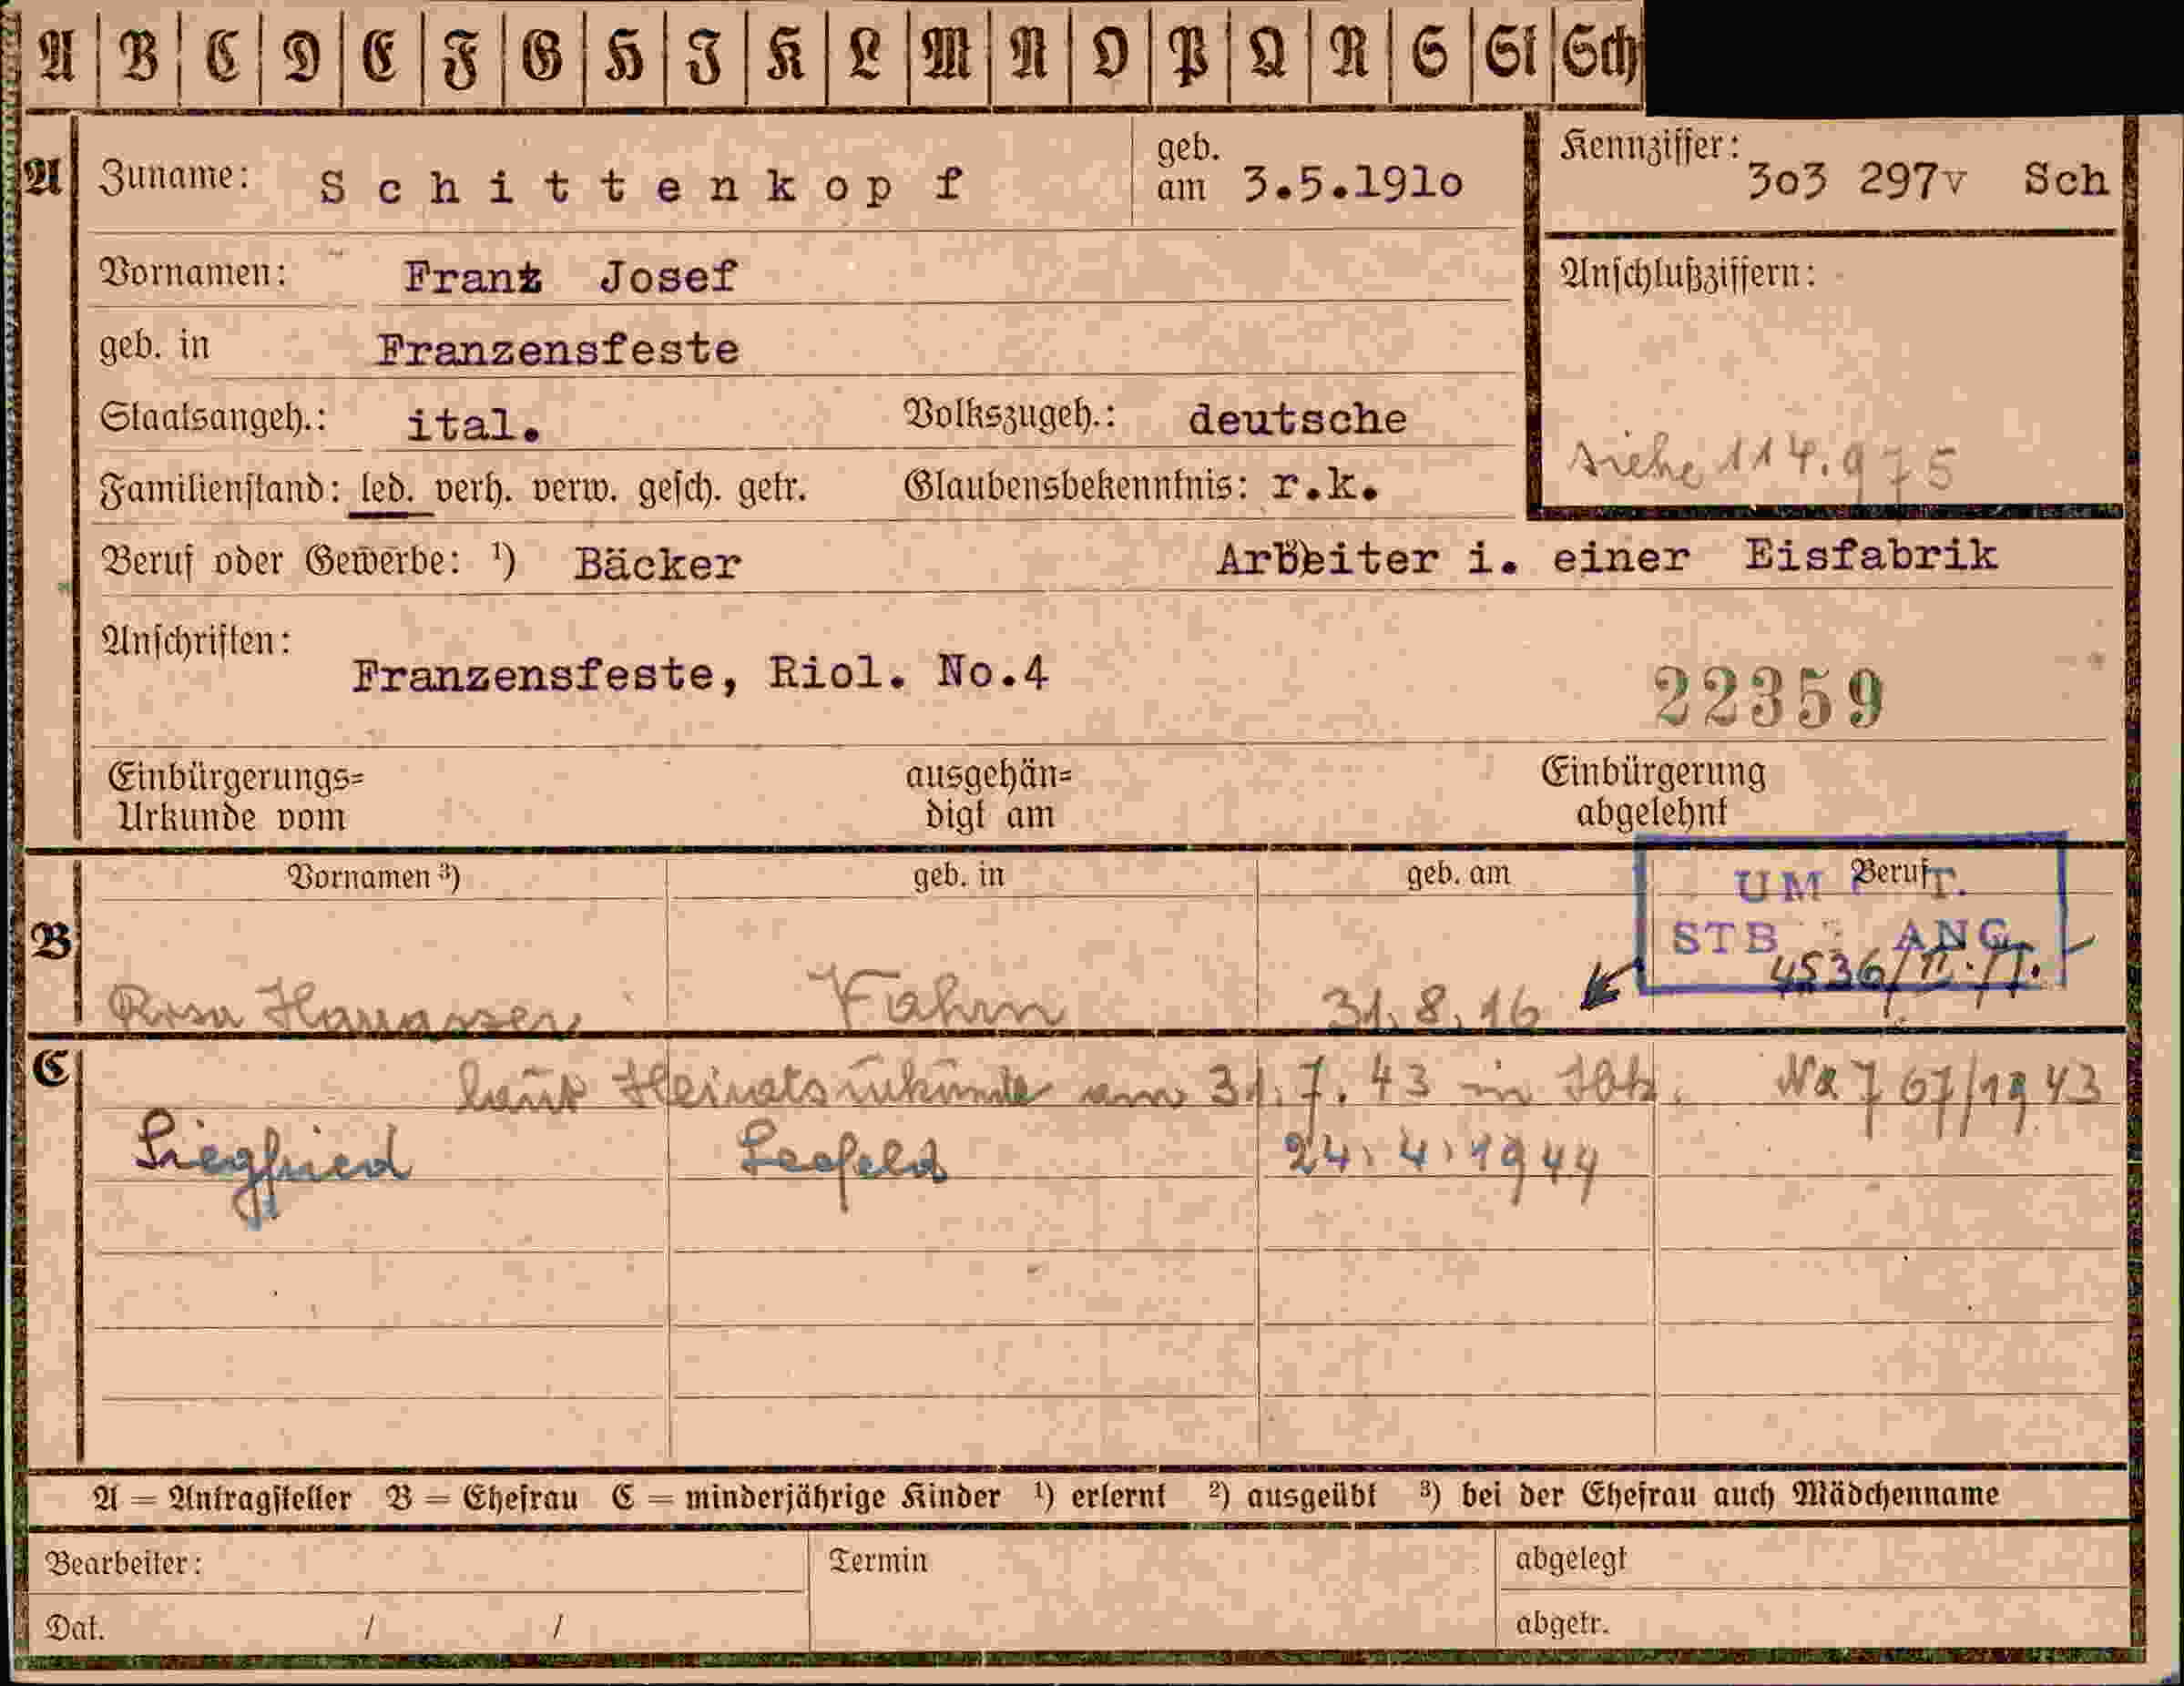 A B C D E F G H I K L M N O P Q R S St Sch
A Zuname: Schittenkopf geb. am 3.5.191o Kennziffer: 3o3 297v Sch
Vornamen: Franz Josef Anschlußziffern:
geb. in Franzensfeste
Staatsangeh.: ital. Volkszugeh.: deutsche
siehe 114.975
Familienstand: led. verh. verw. gesch. getr. Glaubensbekenntnis: r.k.
Beruf oder Gewerbe: ¹) Bäcker Arbeiter i. einer Eisfabrik
Anschriften:
Franzensfeste, Riol. No.4 22359
Einbürgerungs= ausgehän= Einbürgerung
Urkunde vom digt am abgelehnt
Vornamen ³) geb. in geb. am Beruf
UM T.
B STB ANG
4536/II.
Rosa Vahrn 31.8.16
C laut Heiratsurkunde am 31.7.43 in Ibk. No 767/1943
Siegfried Seefeld 24.4.1944
A = Antragsteller B = Ehefrau C = minderjährige Kinder ¹) erlernt ²) ausgeübt ³) bei der Ehefrau auch Mädchenname
Bearbeiter: Termin abgelegt
Dat. / / abgetr.